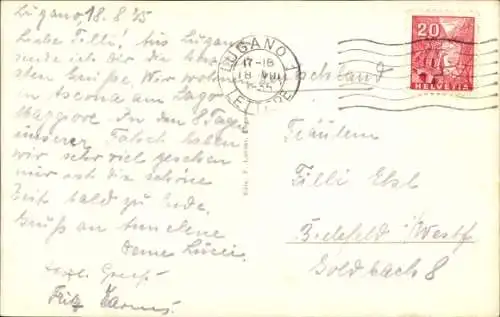 Lugano, 18.8.35
Liebe Tilli! Aus Lugano
sende ich Dir die
sten Grüße. Wir
in Ascona am Lago
Maggiore. In den 8 Tagen
unserer haben
wir sehr viel gesehen
nur ist die schöne
Zeit bald zu Ende.
Gruß an
Deine Lucie.
Gruß
Fritz
LUGANO 1
17-18
18 VIII
1935
LETTERE
20
HELVETIA
Deutschland
Fräulein
Tilli
Bielefeld i/Westf
Goldbach 8